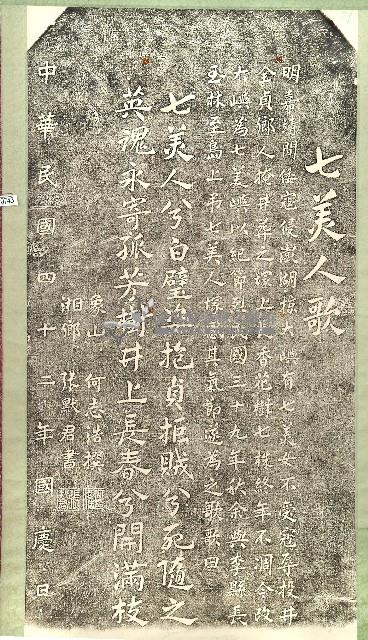 七美人歌
明嘉靖間倭寇侵澎湖掠大嶼有七美女不受寇辱投井
全貞鄉人掩井葬之塚上生香花樹七株終年不凋今改
大嶼為七美嶼以紀節烈民國三十九年秋余與李縣長
玉林至島上弔七美人塚感其氣節遂為之歌歌曰
七美人兮白璧姿抱貞拒賊兮死隨之
英魂永寄孤芳樹井上長春兮開滿枝
象山 何志浩撰
湘鄉 張默君書
中華民國四十二年國慶日